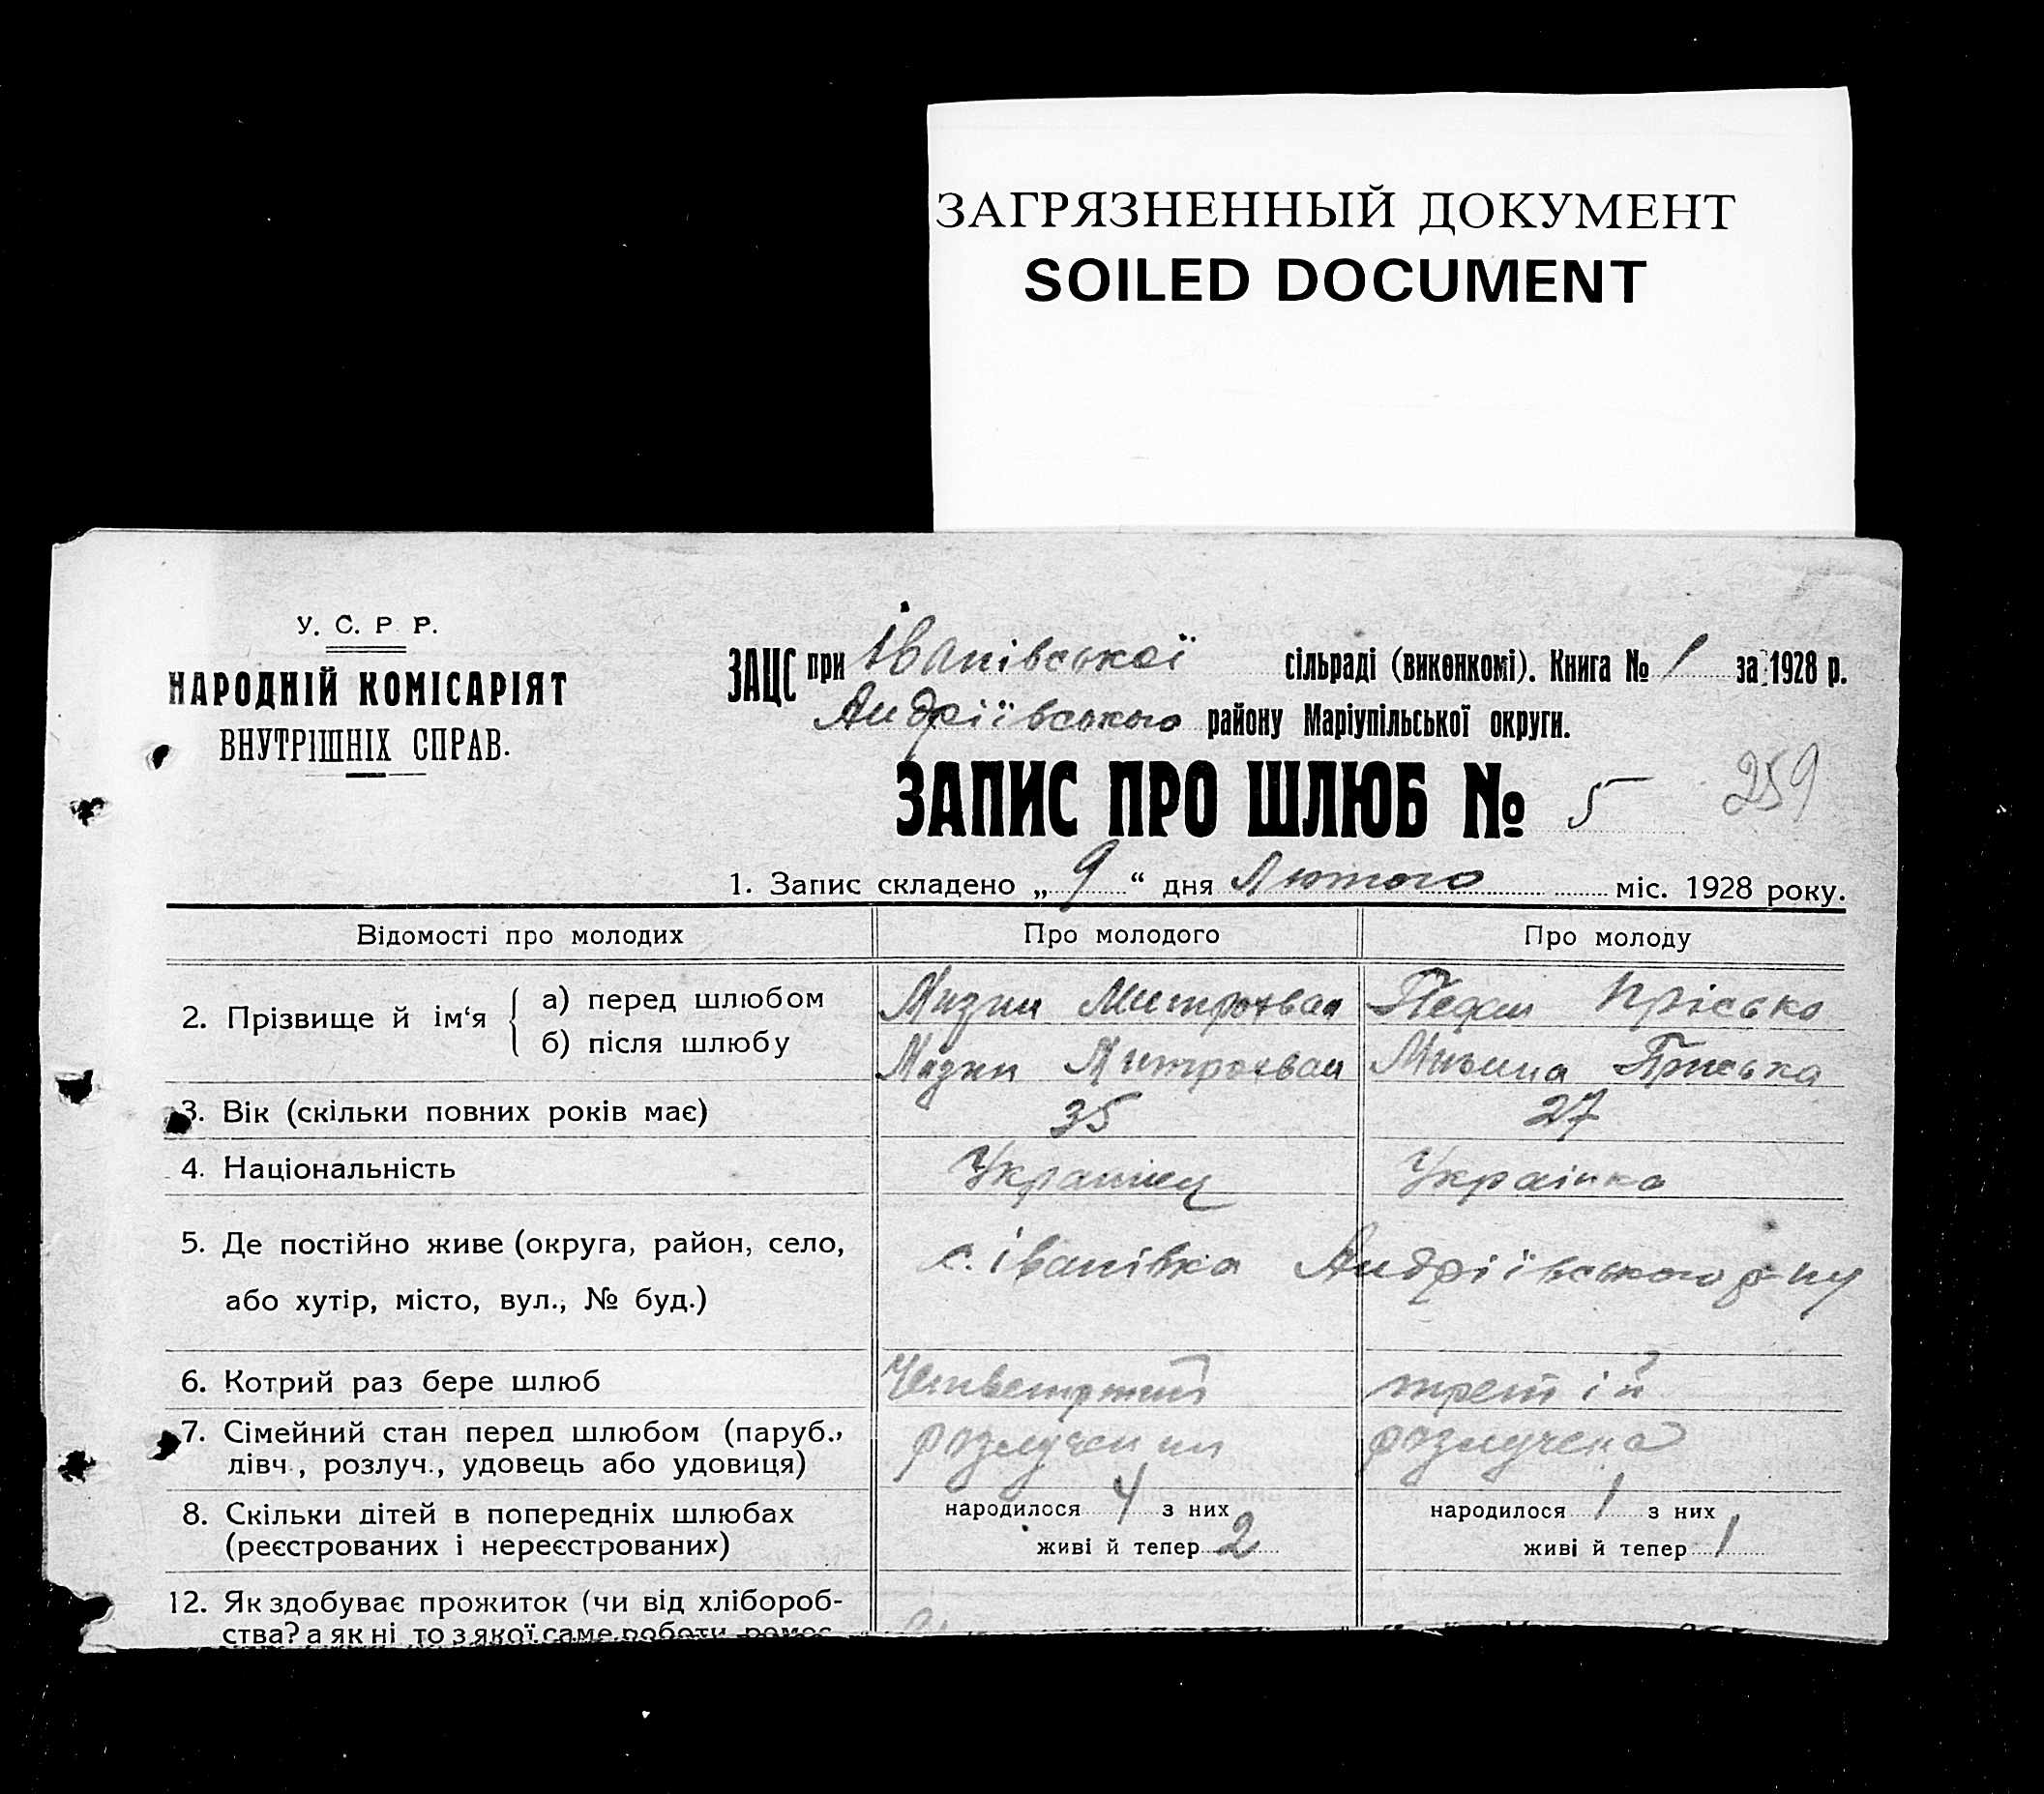 ЗАГРЯЗНЕННЫЙ ДОКУМЕНТ
SOILED DOCUMENT
У. С. Р Р.
НАРОДНІЙ КОМІСАРІЯТ
ВНУТРІШНІХ СПРАВ.
ЗАЦС при Іванівської сільраді (виконкомі). Книга № 1 за 1928 р.
Андріївського району Маріупільської округи.
ЗАПИС ПРО ШЛЮБ № 5 259
1. Запис складено „ 9 “ дня Лютого міс. 1928 року.
Відомості про молодих Про молодого Про молоду
2. Прізвище й ім‘я а) перед шлюбом Прісько
б) після шлюбу Приська
3. Вік (скільки повних років має) 35 27
4. Національність Українец Українка
5. Де постійно живе (округа, район, село, с. Іванівка Андріївського р-ну
або хутір, місто, вул., № буд.)
6. Котрий раз бере шлюб третій
7. Сімейний стан перед шлюбом (паруб., розлучена
лівч., розлуч., удовець або удовиця)
8. Скільки дітей в попередніх шлюбах народилося 4 з них народилося 1 з них
(реєстрованих і нереєстрованих) живі й тепер 2 живі й тепер 1
12. Як здобуває прожиток (чи від хлібороб-
ства? а як ні то з якої саме роботи